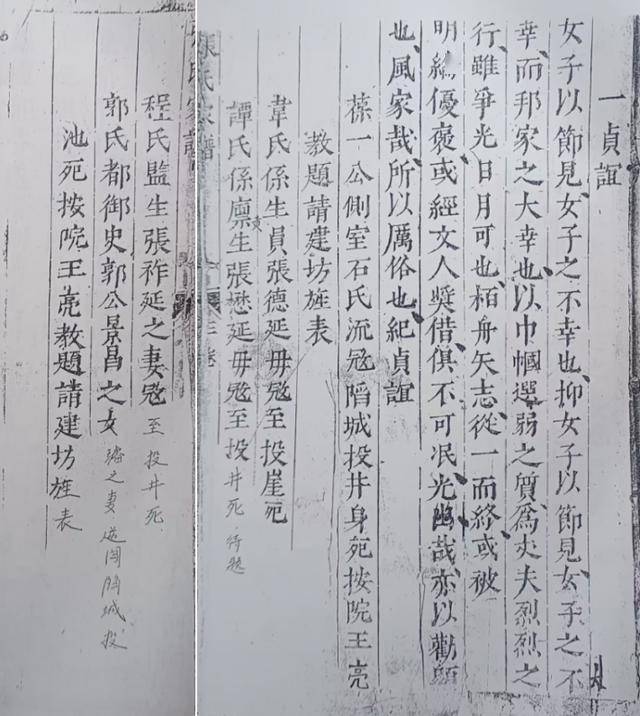 一貞誼
女子以節見女子之不幸也抑女子以節見女子之不
幸而邦家之大幸也以巾幗選弱之質爲丈夫烈烈之
行雖爭光日月可也栢舟矢志從一而終或被
明綸優褒或經文人奬借俱不可冺光幽哉亦以勸顯
也風家哉所以厲俗也紀貞誼
葆一公側室石氏流宼陷城投井身死按院王亮
教題請建坊旌表
韋氏係生員張德延毋宼至投崖死
譚氏係廪生張懋延毋宼至投井死 待題
張氏家譜 三卷
程氏監生張祚延之妻宼至投井死
郭氏都御史郭公景昌之女 之妻 闖陷城投
池死按院王亮教題請建坊旌表